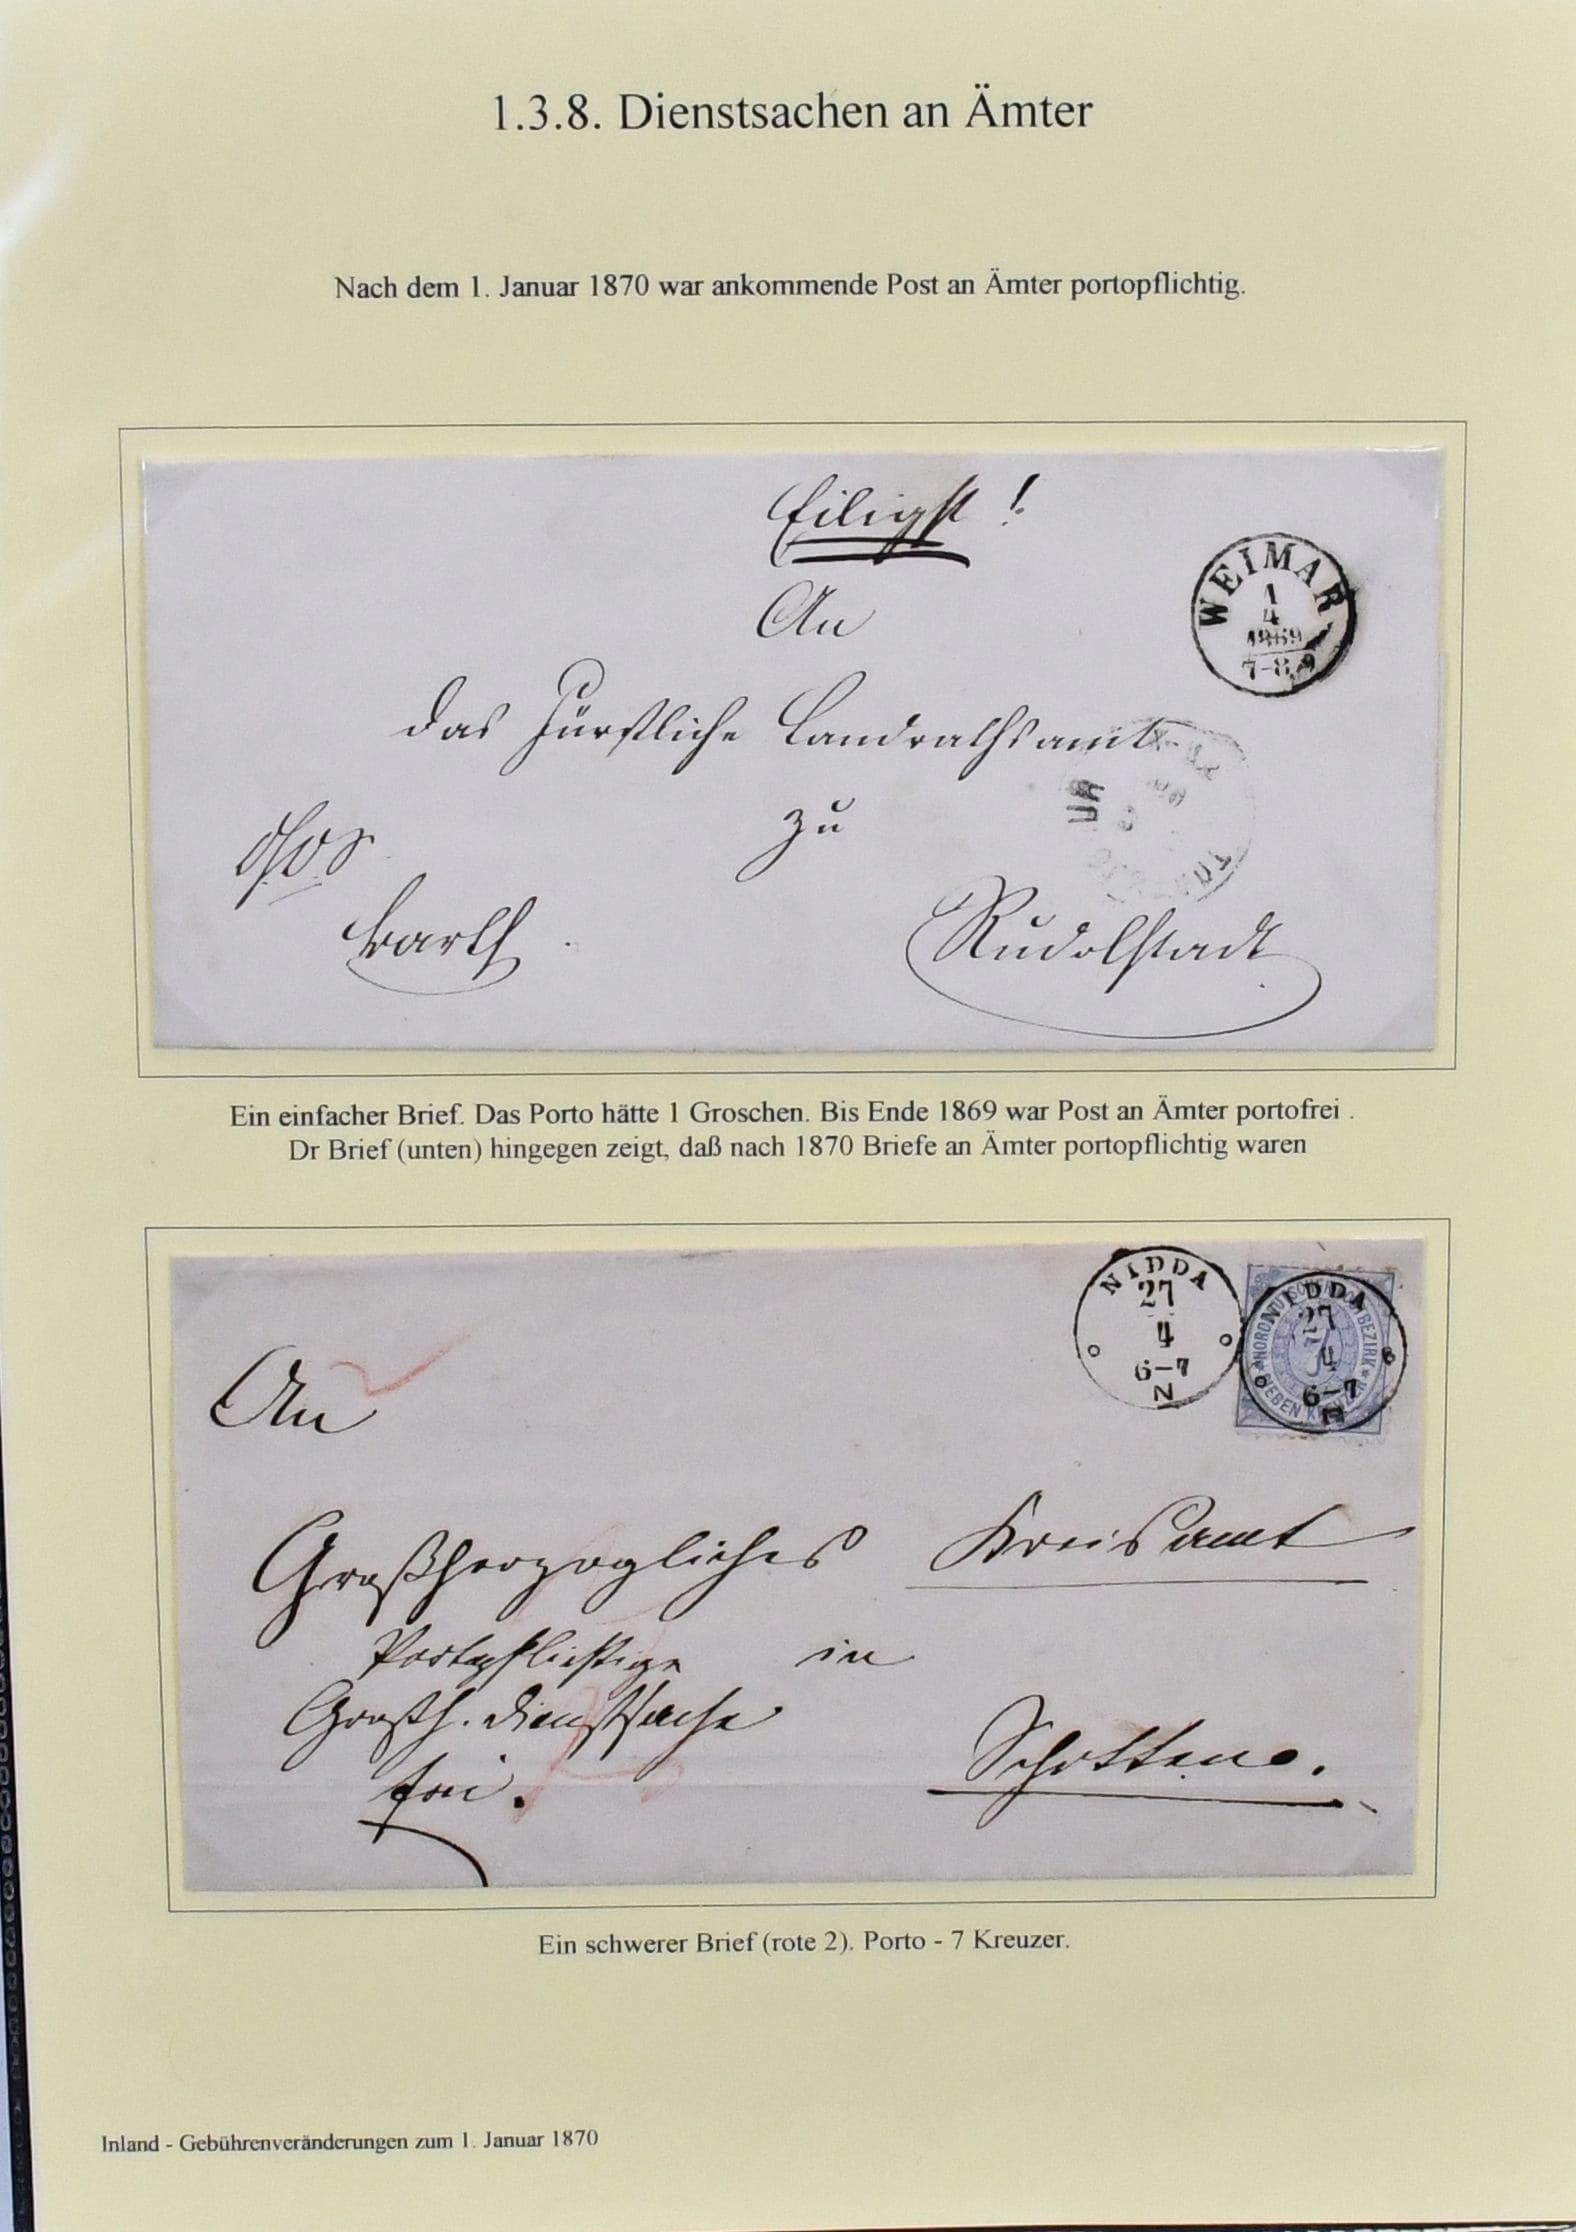 1.3.8. Dienstsachen an Ämter
Nach dem 1. Januar 1870 war ankommende Post an Ämter portopflichtig.
Eiligst !
WEIMAR
1
4
1869
7-8
An
das Fürstliche Landrathsamt
zu
Barth
Rudolstadt
Ein einfacher Brief. Das Porto hätte 1 Groschen. Bis Ende 1869 war Post an Ämter portofrei .
Dr Brief (unten) hingegen zeigt, daß nach 1870 Briefe an Ämter portopflichtig waren
NIDDA
27
4
6-7
N
NORDDEUTSCHER POSTBEZIRK
SIEBEN KREUZER
7
NIDDA
27
4
6-7
N
An
Großherzogliches Kreisamt
Portopflichtige in
Großh. Dienstsache
frei. Schotten.
Ein schwerer Brief (rote 2). Porto - 7 Kreuzer.
Inland - Gebührenveränderungen zum 1. Januar 1870